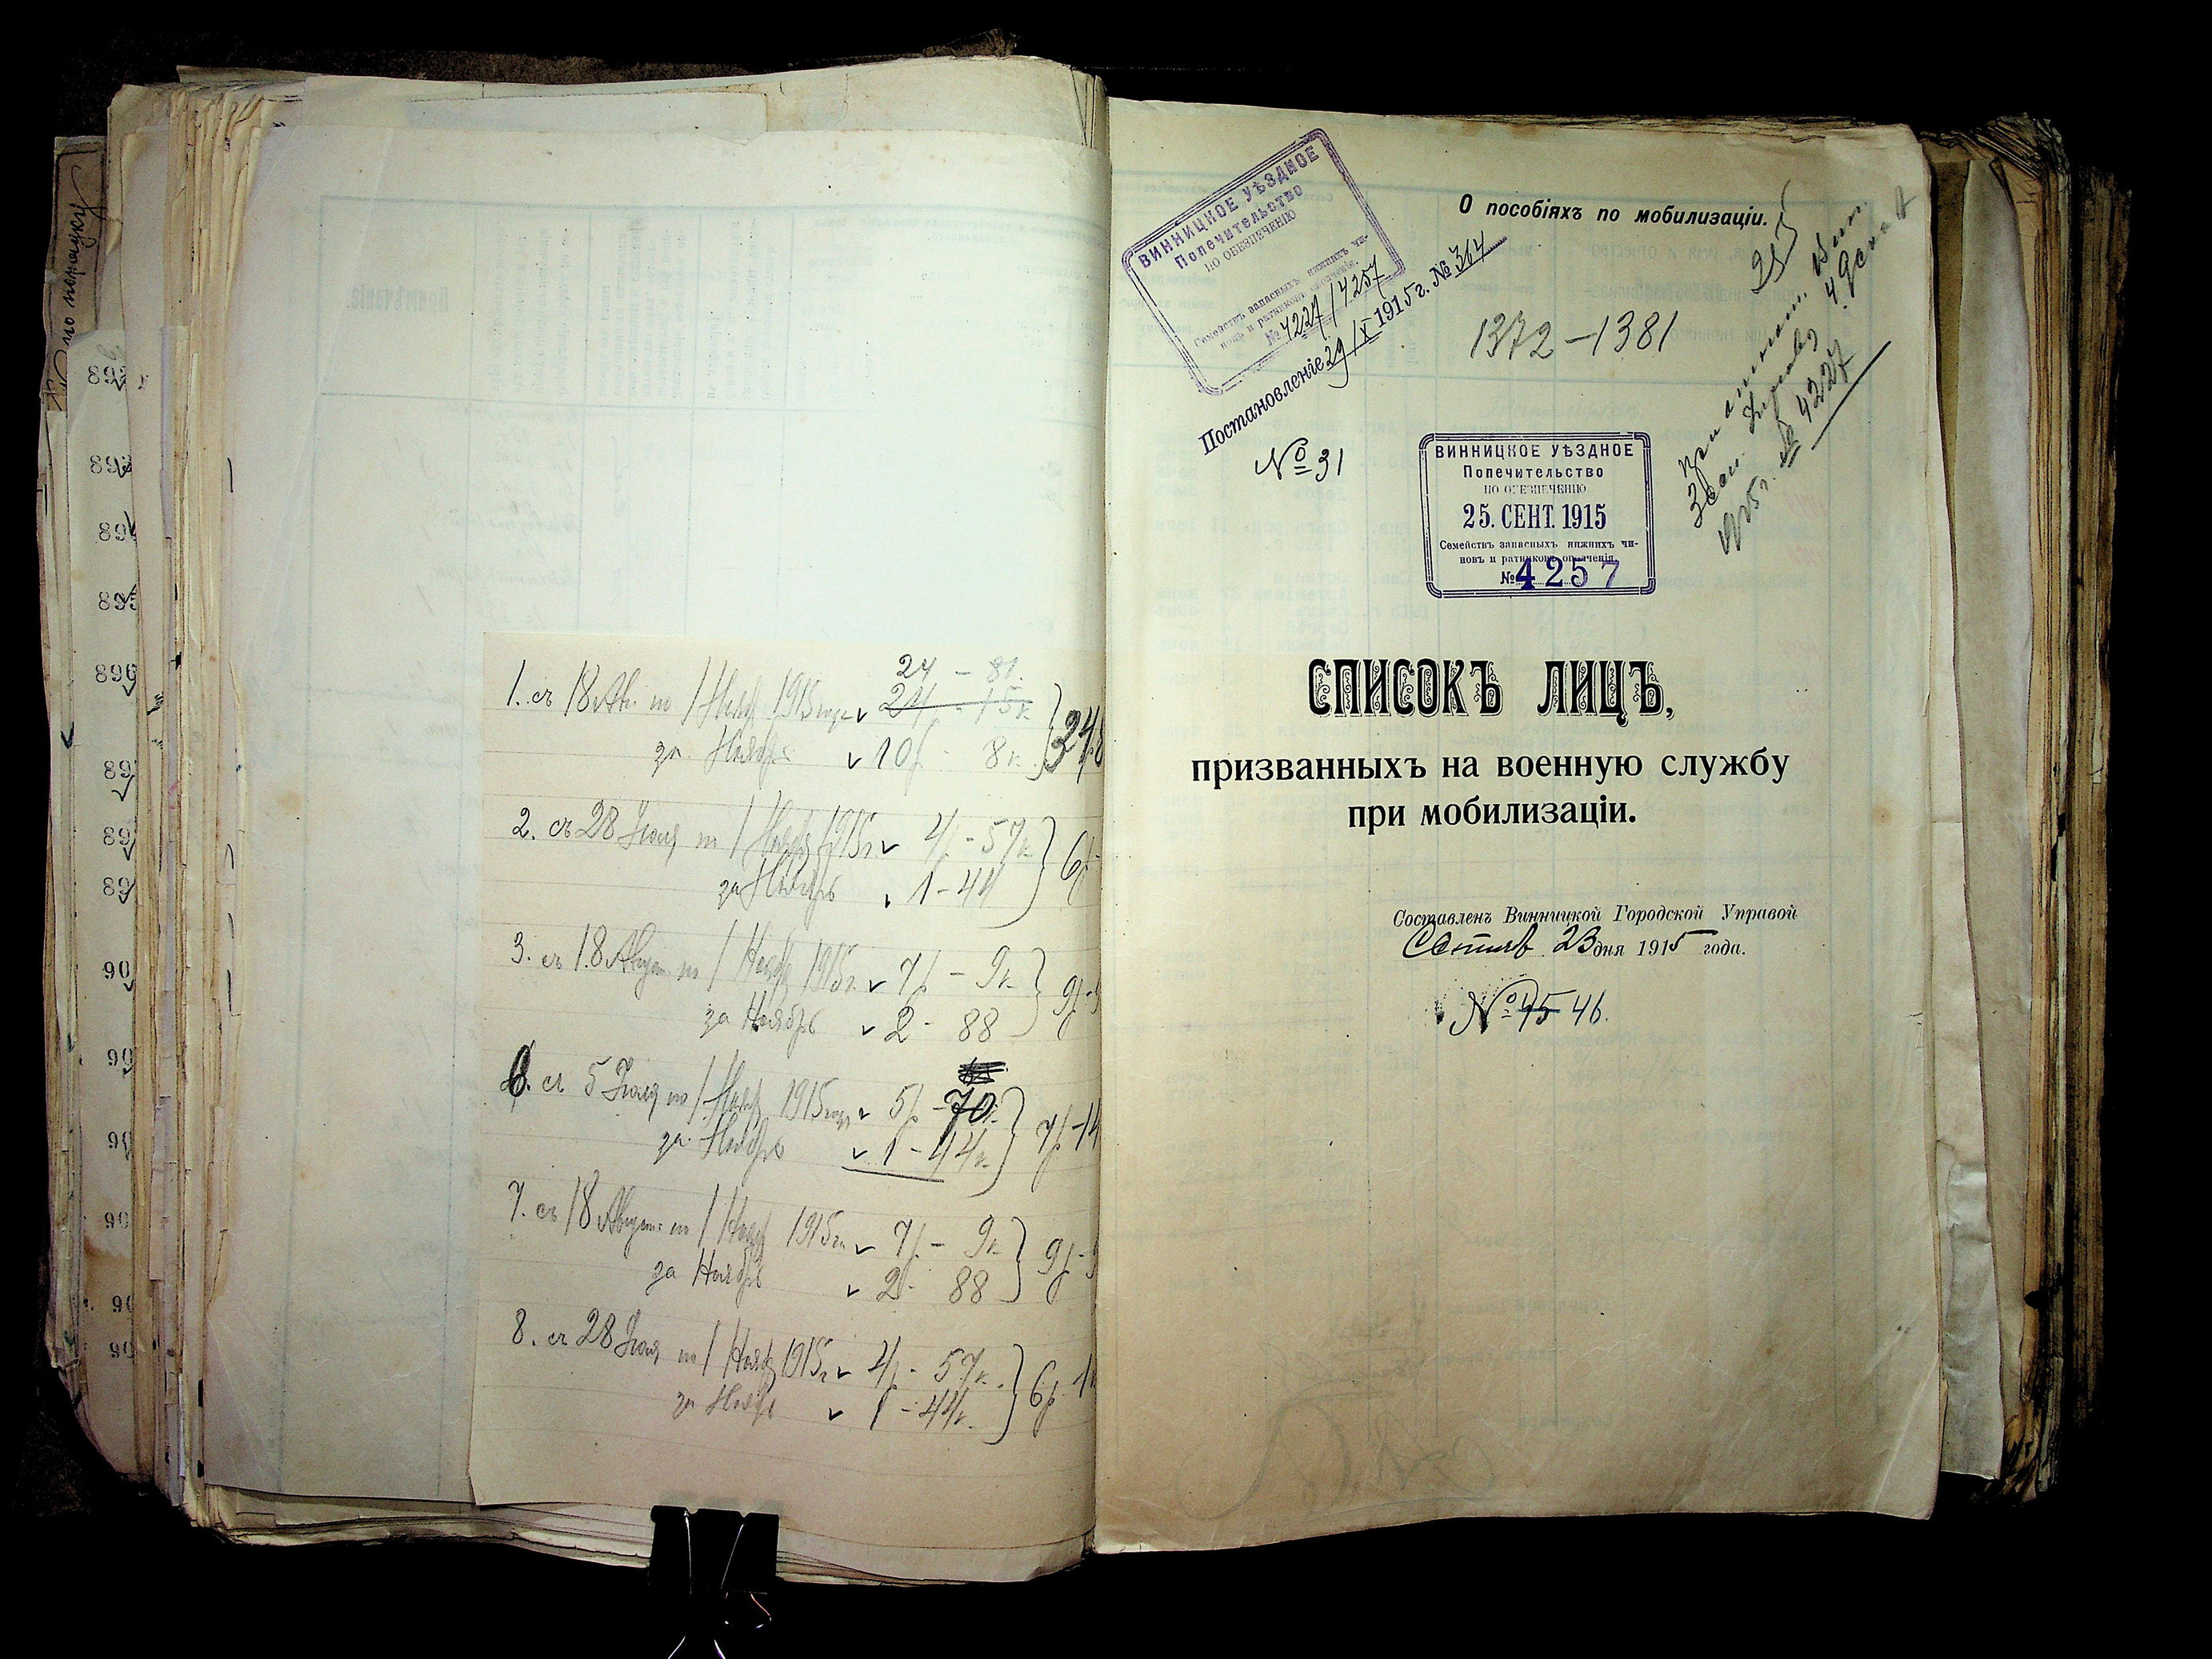 по порядку
1. съ 18 Авг. по 1 Нояб 1915 года 24 – 81.
24 р. – 15 к.
за Ноябрь 10 р – 8 к.
2. съ 28 Июля по 1 Нояб 1915 г. 4 р – 57 к.
за Ноябрь 1 – 44
3. съ 18 Август. по 1 Нояб 1915 г. 7 р – 9 к.
за Ноябрь 2 – 88
6. съ 5 Июля по 1 Нояб 1915 года 5 р – 70 к.
за Ноябрь 1 – 44 к.
7. съ 18 Август. по 1 Нояб 1915 г. 7 р – 9 к.
за Ноябрь 2 – 88
8. съ 28 Июля по 1 Нояб 1915 г 4 р. – 57 к.
за Ноябр 1 – 44 к.
ВИННИЦКОЕ УѢЗДНОЕ
Попечительство
ПО ОБЕЗПЕЧЕНІЮ
Семействъ запасныхъ нижнихъ чи-
новъ и ратниковъ ополченія.
№ 4227/4257
Постановленіе 29/X 1915 г. № 364
№ 31
О пособіяхъ по мобилизаціи.
1372 – 1381
№ 4227
ВИННИЦКОЕ УѢЗДНОЕ
Попечительство
ПО ОБЕЗПЕЧЕНІЮ
25. СЕНТ. 1915
Семействъ запасныхъ нижнихъ чи-
новъ и ратниковъ ополченія.
№ 4257
СПИСОКЪ ЛИЦЪ,
призванныхъ на военную службу
при мобилизаціи.
Составленъ Винницкой Городской Управой
Сентяб 23 дня 1915 года.
№ 45 46.